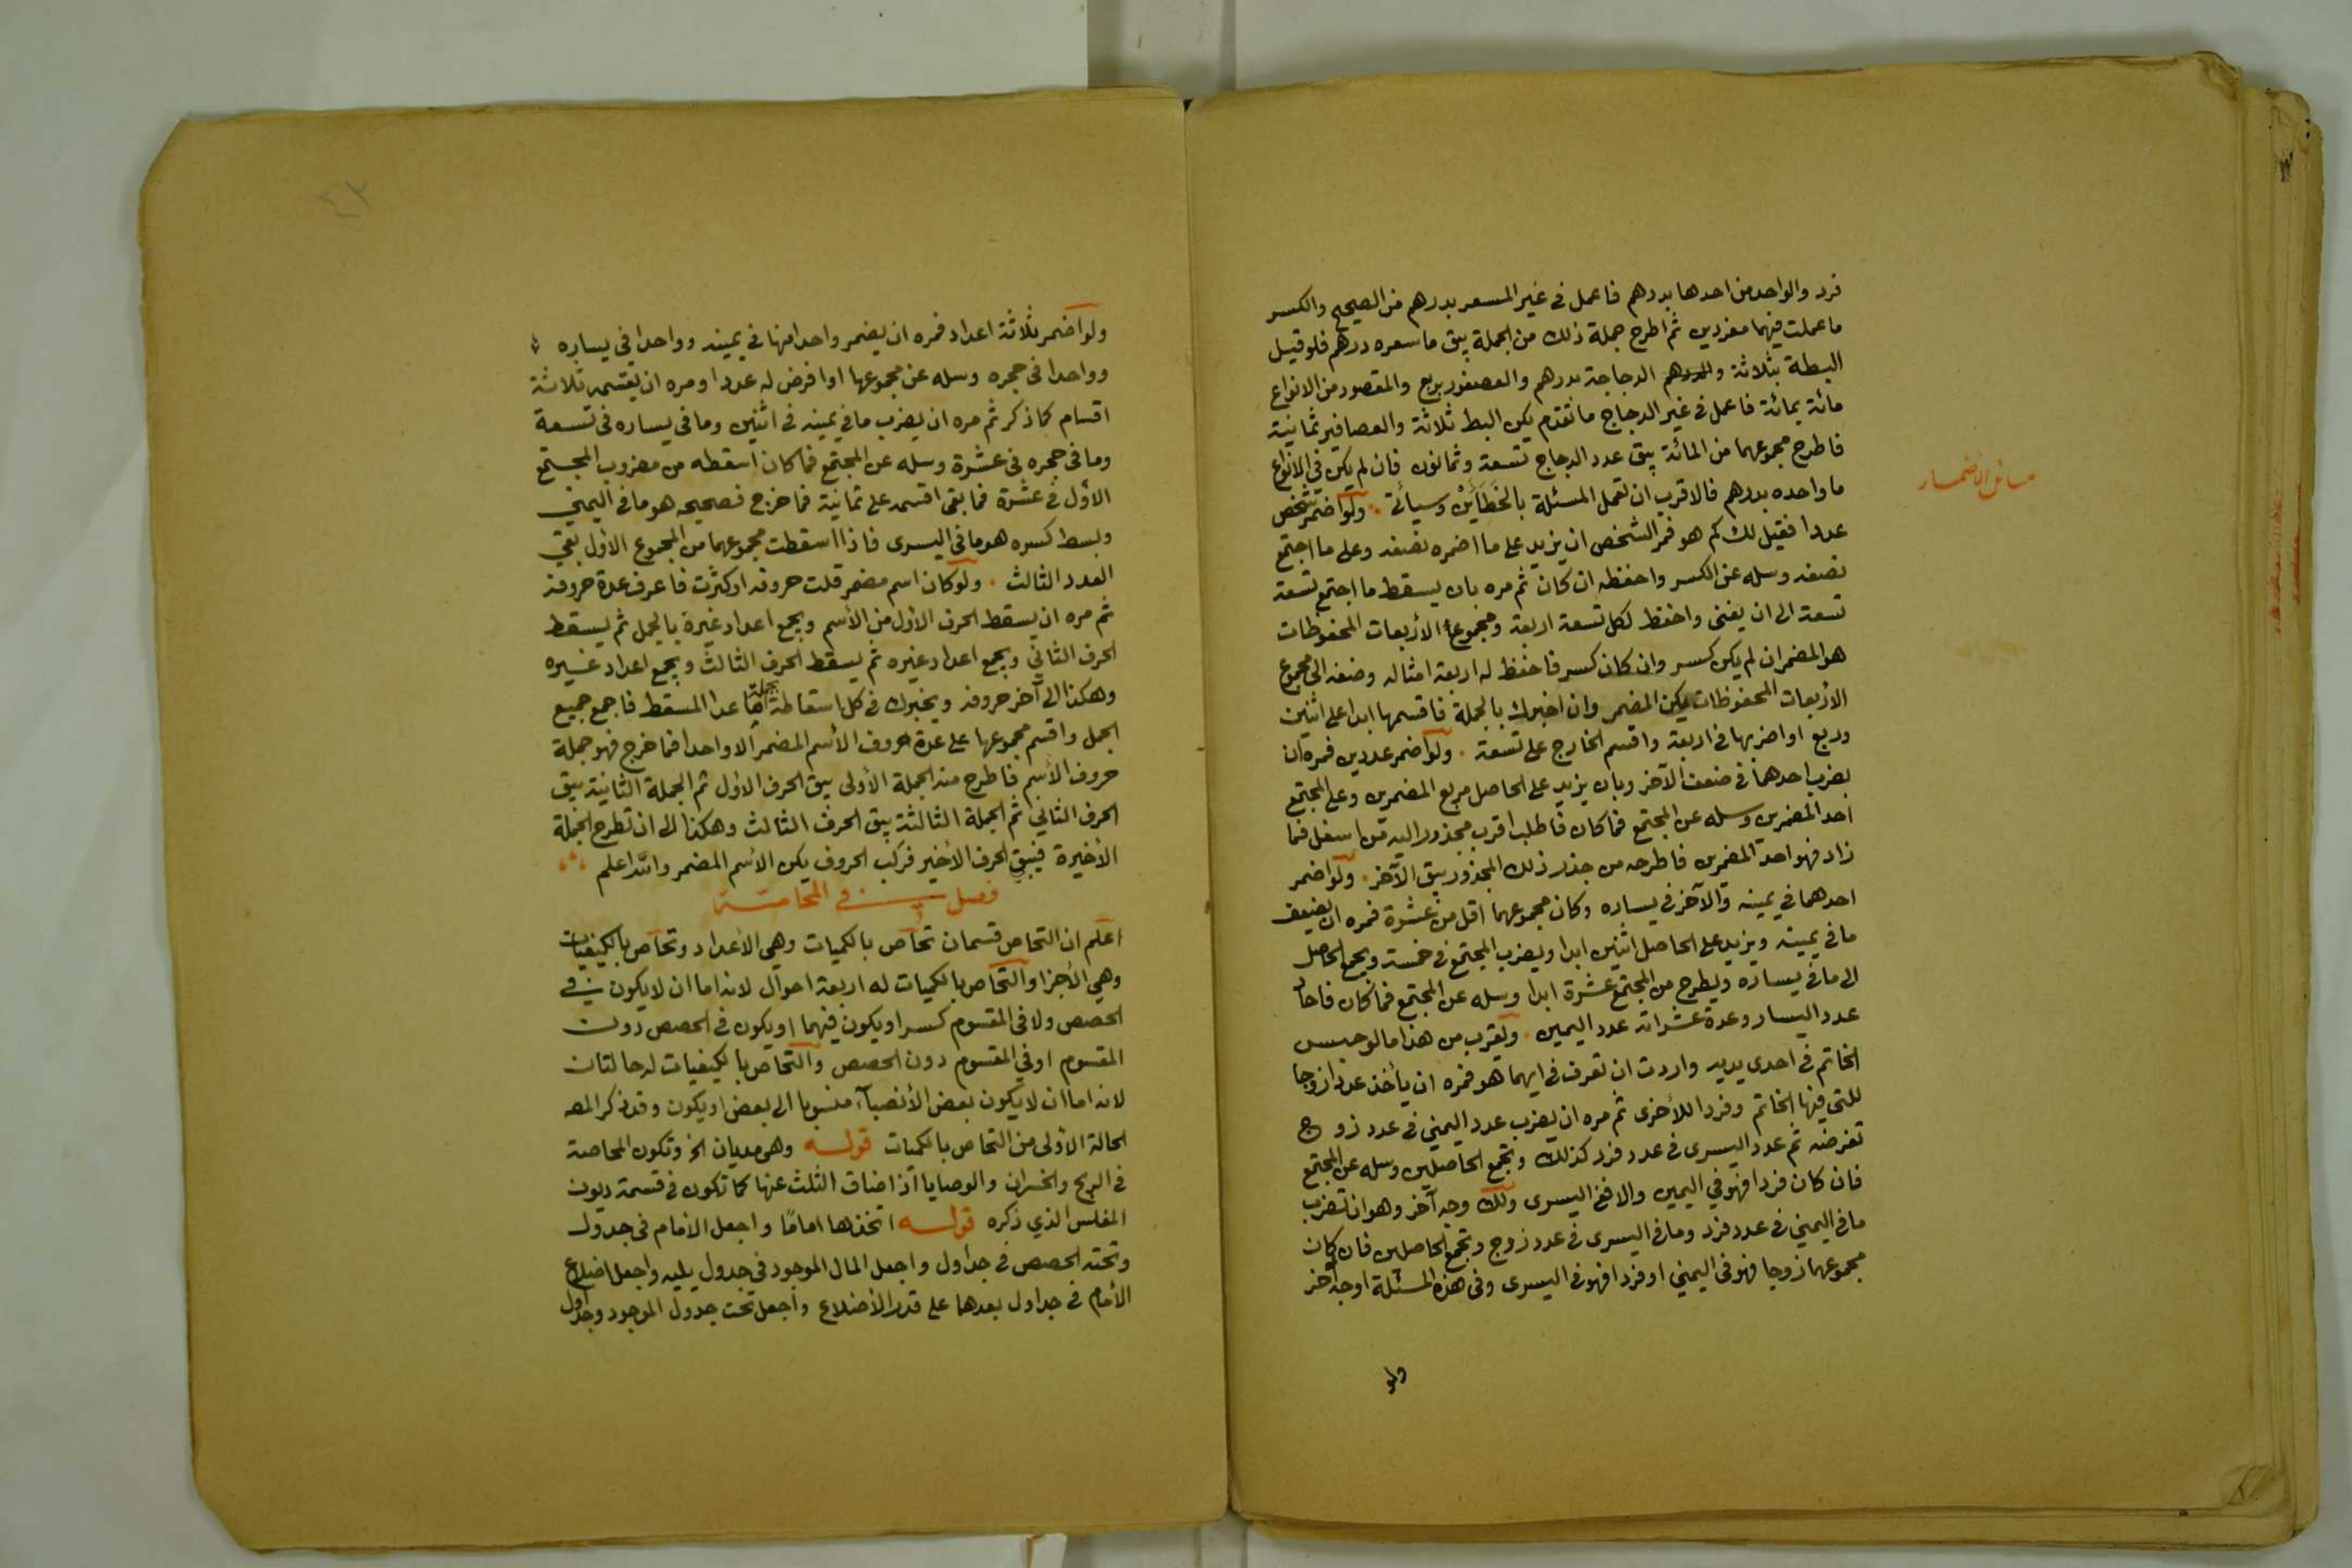 فرد والواحد من احدها بدرهم فاعمل في غير المسعر بدرهم من الصحيح والكسر
ما عملت فيهما مفردين ثم اطرح جملة ذلك من الجملة يبق ما سعره درهم فلو قيل
البطة بثلاثة والدجاجة بدرهم والعصفور بربع والمقصود من الانواع
مائة بمائة فاعمل في غير الدجاج ما تقدم يكن البط ثلاثة والعصافير ثمانية
فاطرح مجموعهما من المائة يبق عدد الدجاج تسعة وثمانون فان لم يكن في الانواع
ما واحده بدرهم فالاقرب ان تعمل المسئلة بالخطأين وسيأتي . ولو اضمر شخص
مسائل الاضمار
عددا فقيل لك كم هو فمر الشخص ان يزيد على ما اضمره نصفه وعلى ما اجتمع
نصفه وسله عن الكسر واحفظه ان كان ثم مره بان يسقط ما اجتمع تسعة
تسعة الى ان يفنى واحفظ لكل تسعة اربعة ومجموع الأربعات المحفوظات
هو المضمر ان لم يكن كسر وان كان كسر فاحفظ له اربعة امثاله وضفه الى مجموع
الأربعات المحفوظات يكن المضمر وان اخبرك بالجملة فاقسمها ابدا على اثنين
وربع او اضربها في اربعة واقسم الخارج على تسعة . ولو اضمر عددين فمره ان
يضرب احدهما في ضعف الآخر وبان يزيد على الحاصل مربع المضمرين وعلى المجتمع
احد المضمرين وسله عن المجتمع فما كان فاطلب اقرب مجذور اليه من اسفل فما
زاد فهو احد المضمرين فاطرحه من جذر ذلك المجذور يبق الآخر . ولو اضمر
احدهما في يمينه والآخر في يساره وكان مجموعهما اقل من عشرة فمره ان يضعف
ما في يمينه ويزيد على الحاصل اثنين ابدا ويضرب المجتمع في خمسة ويجمع الحاصل
الى ما في يساره ويطرح من المجتمع عشرة ابدا وسله عن المجتمع فما كان فاحاد
عدد اليسار وعدة عشراته عدد اليمين . ويقرب من هذا ما لو حبس
الخاتم في احدى يديه واردت ان تعرف في ايهما هو فمره ان يأخذ عددا زوجا
للتي فيها الخاتم وفردا للأخرى ثم مره ان يضرب عدد اليمني في عدد زوج
تفرضه ثم عدد اليسرى في عدد فرد كذلك ويجمع الحاصلين وسله عن المجتمع
فان كان فردا فهو في اليمين والا ففي اليسرى ولك وجه آخر وهو ان تضرب
ما في اليمني في عدد فرد وما في اليسرى في عدد زوج وتجمع الحاصلين فان كان
مجموعهما زوجا فهو في اليمني او فردا فهو في اليسرى وفي هذه المسئلة اوجه اخر
ولو
ولو اضمر ثلاثة اعداد فمره ان يضمر واحدا منها في يمينه وواحدا في يساره
وواحدا في حجره وسله عن مجموعها او افرض له عددا ومره ان يقسمه ثلاثة
اقسام كما ذكر ثم مره ان يضرب ما في يمينه في اثنين وما في يساره في تسعة
وما في حجره في عشرة وسله عن المجتمع فما كان اسقطه من مضروب المجتمع
الأول في عشرة فما بقى اقسمه على ثمانية فما خرج فصحيحه هو ما في اليمني
وبسط كسره هو ما في اليسرى فاذا اسقطت مجموعهما من المجموع الأول بقي
العدد الثالث . ولو كان اسم مضمر قلت حروفه او كثرت فاعرف عدة حروفه
ثم مره ان يسقط الحرف الأول من الأسم ويجمع اعداد غيره بالجمل ثم يسقط
الحرف الثاني ويجمع اعداد غيره ثم يسقط الحرف الثالث ويجمع اعداد غيره
وهكذا الى آخر حروفه ويخبرك في كل اسقاطة بجملة ما عدا المسقط فاجمع جميع
الجمل واقسم مجموعها على عدة حروف الأسم المضمر الا واحدا فما خرج فهو جملة
حروف الأسم فاطرح منه الجملة الأولى يبق الحرف الاول ثم الجملة الثانية يبق
الحرف الثاني ثم الجملة الثالثة يبق الحرف الثالث وهكذا الى ان تطرح الجملة
الأخيرة فيبقى الحرف الأخير فركب الحروف يكن الأسم المضمر والله اعلم
فصل في المحاصة
اعلم ان التحاص قسمان تحاص بالكميات وهي الأعداد وتحاص بالكيفيات
وهي الأجزا والتحاص بالكميات له اربعة احوال لانه اما ان لا يكون في
الحصص ولا في المقسوم كسر او يكون فيهما او يكون في الحصص دون
المقسوم او في المقسوم دون الحصص والتحاص بالكيفيات له حالتان
لانه اما ان لا يكون بعض الأنصباء منسوبا الى بعض او يكون وقد ذكر المصـ
الحالة الأولى من التحاص بالكميات قوله وهي مديان الخ وتكون المحاصة
في الربح والخسران والوصايا اذا ضاق الثلث عنها كما تكون في قسمة ديون
المفلس الذي ذكره قوله اتخذها اماما واجعل الأمام في جدول
وتحته الحصص في جداول واجعل المال الموجود في جدول يليه واجعل اضلاع
الأمام في جداول بعدهما على قدر الأضلاع واجعل تحت جدول الموجود وجداول